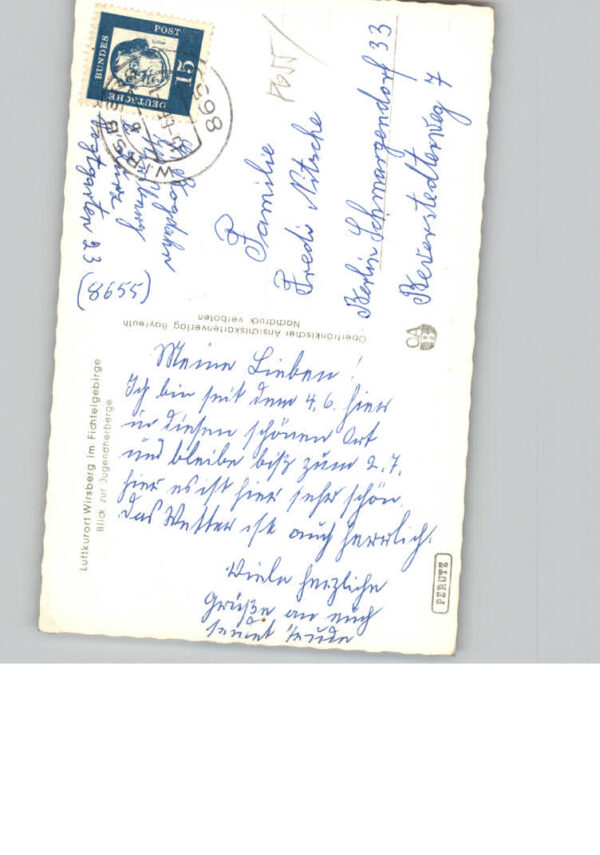 Luftkurort Wirsberg im Fichtelgebirge
Blick zur Jugendherberge
Meine Lieben!
Ich bin seit dem 4.6. hier
in diesen schönen Ort
und bleibe biß zum 2.7.
hier es ist hier sehr schön
das Wetter ist auch herrlich.
Viele herzliche
Grüße an euch
sendet Trude
Oberfränkischer Ansichtskartenverlag Bayreuth
Nachdruck verboten
OA
PERUTZ
DEUTSCHE BUNDES POST
15
8655
Post
Familie
Fredi Nitsche
Berlin Schmargendorf 33
Beverstedterweg 7
23
(8655)